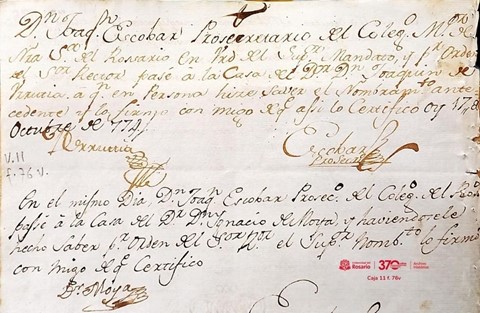 Dn Joaqn Escobar Prosecretario del Colego Mr de
Nra Sa del Rosario en Vrd del Supr Mandato, y pr Orden
del Sor Rector pase à la Casa del Dor Dn Joaquin de
Vrrutia à qn en Persona hize saver el Nombramto ante-
cedente y lo firmo con migo de qe assi lo Certifico oy 17 de
Octubre de 1774
Vrrutia
Escobar
Prosecro
V.11
f. 76 v.
En el mismo Dia Dn Joaqn Escobar Prosecro del Colego del Roso
pasé à la Casa del Dr Dn Ignacio de Moya, y haviendosele
hecho saber pr Orden del Sor Ror el Supr Nombto lo firmó
con migo de qe Certifico
Dr Moya
Universidad del
Rosario
370
Archivo
Histórico
Caja 11 f. 76v